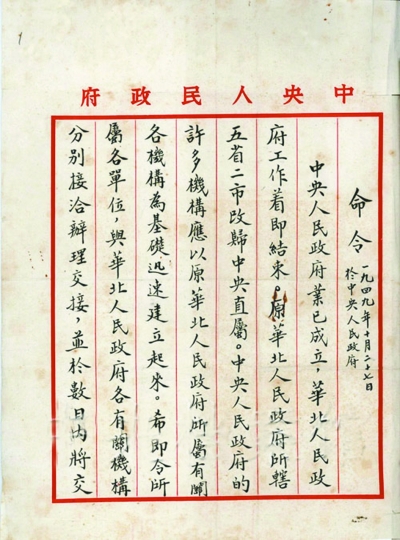 中央人民政府
命令
一九四九年十月二十七日
於中央人民政府
中央人民政府業已成立，華北人民政
府工作着即結束。原華北人民政府所轄
五省二市改歸中央直屬。中央人民政府的
許多機構應以原華北人民政府所屬有關
各機構為基礎迅速建立起來。希即令所
屬各單位，與華北人民政府各有關機構
分別接洽辦理交接，並於數日內將交